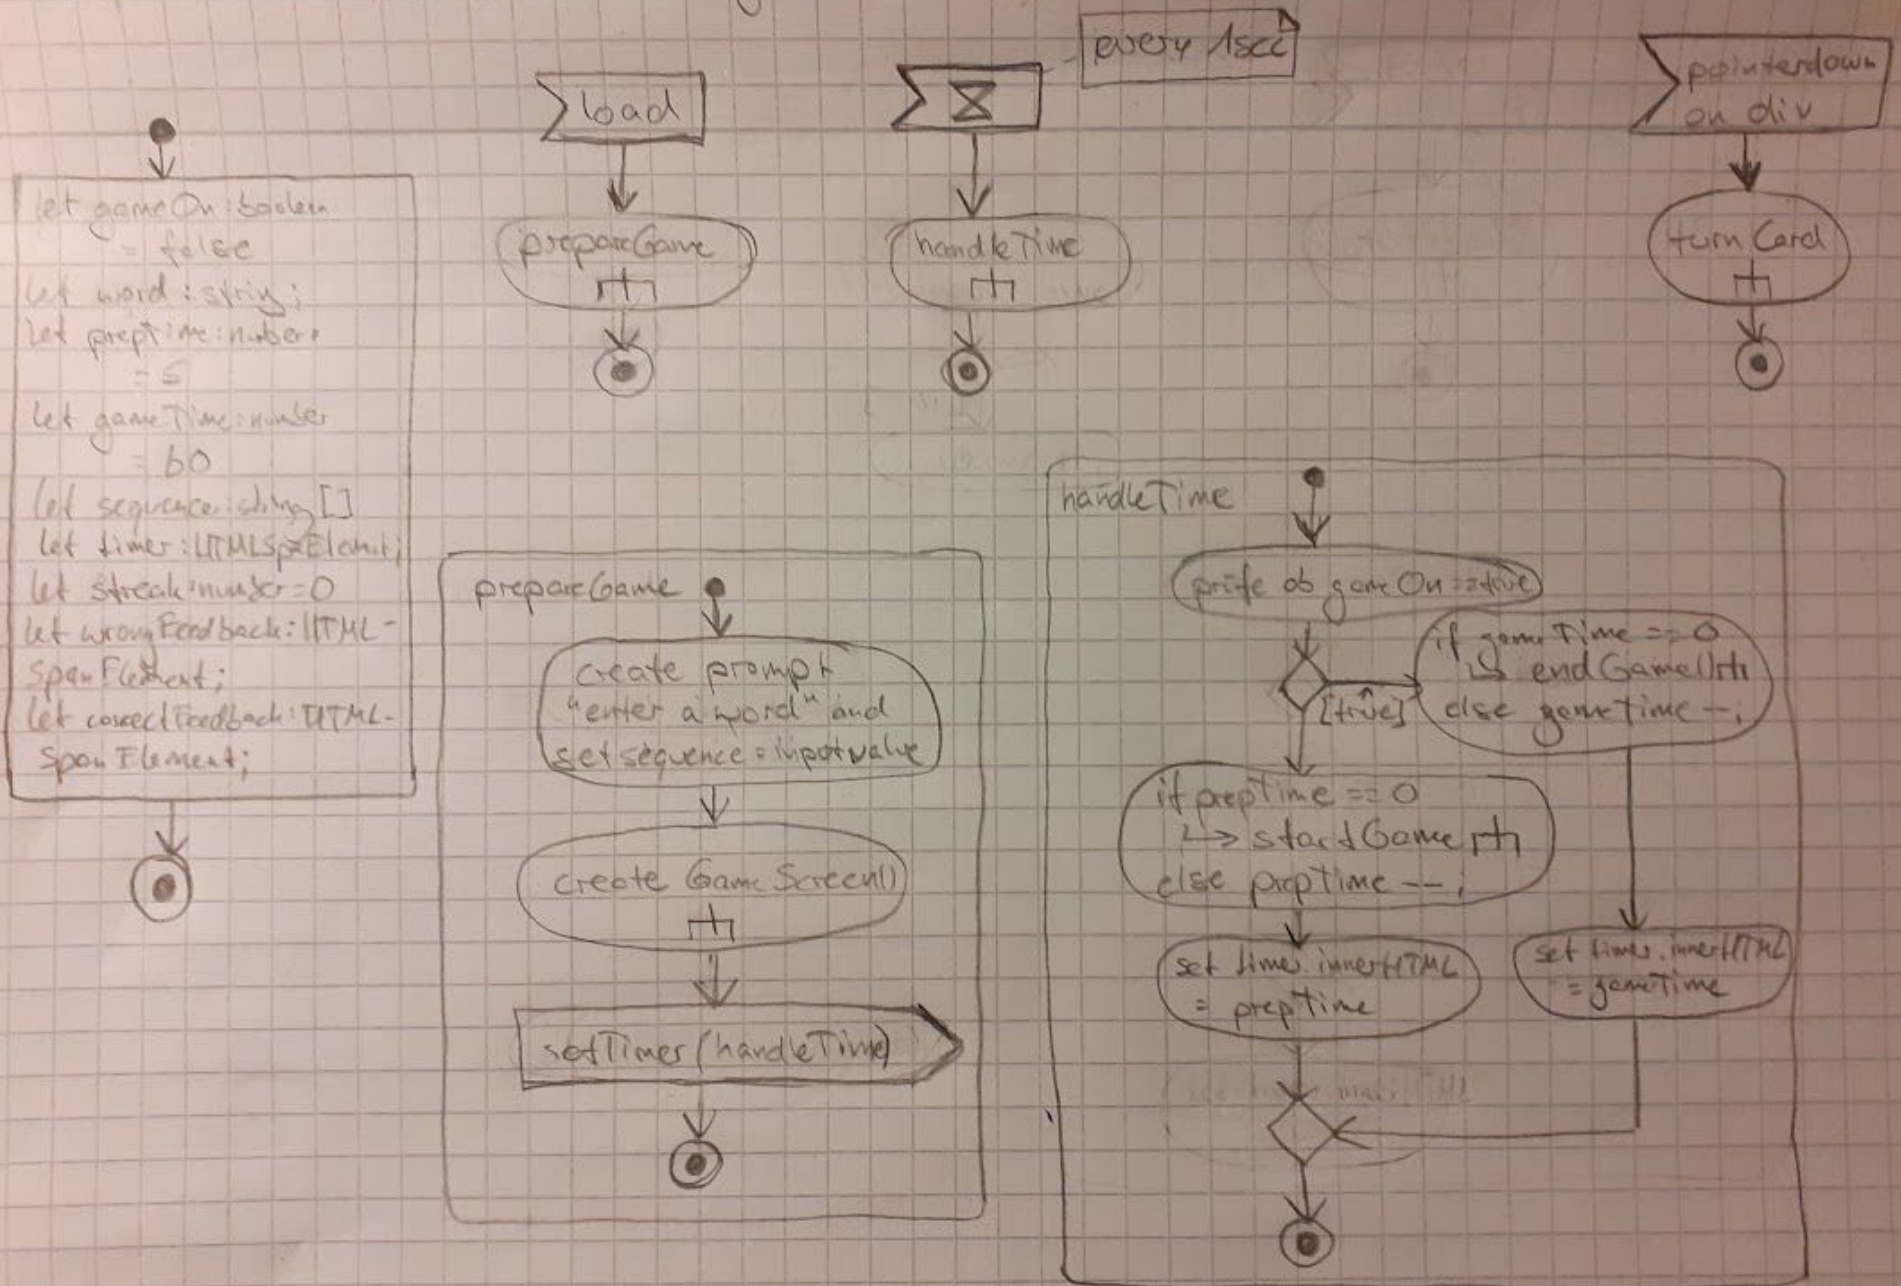 let gameOn: boolean
= false
let word: string;
let prepTime: number
= 5
let gameTime: number
= 60
let sequence: string[]
let timer: HTMLSpanElement;
let streak: number = 0
let wrongFeedback: HTML-
SpanElement;
let correctFeedback: HTML-
SpanElement;
load
prepareGame
every 1sec
handleTime
pointerdown
on div
turnCard
prepareGame
create prompt
"enter a word" and
set sequence = input value
create GameScreen()
setTimer(handleTime)
handleTime
prüfe ob gameOn == true
[true]
if gameTime == 0
endGame()
else gameTime --;
if prepTime == 0
startGame
else prepTime --;
set timer.innerHTML
= prepTime
set timer.innerHTML
= gameTime